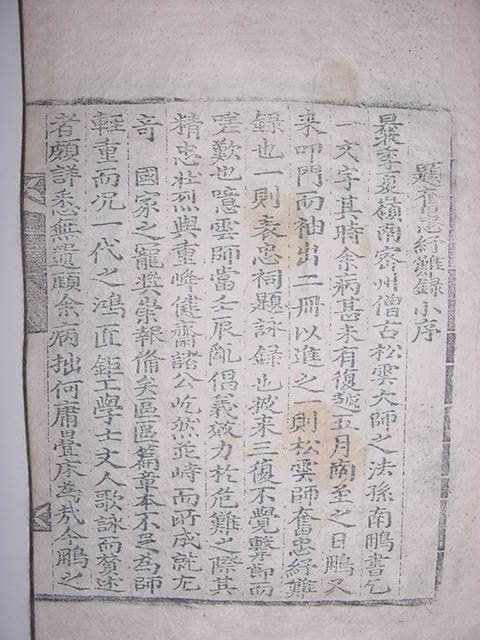 題奮忠紓難錄小序
曩歲季夏嶺南密州僧古松雲大師之法孫南鵬書乞
一文字其時余病甚未有復越五月南至之日鵬又
来叩門而袖出二冊以進之一則松雲師奮忠紓難
録也一則表忠祠題詠録也披来三復不覺擊節而
嗟歎也噫雲師當壬辰亂倡義效力於危難之際其
精忠壯烈與重峰健齋諸公屹然並峙而所成就尤
奇 國家之寵奬崇報備矣區區篇章本不足為師
輕重而況一代之鴻匠鉅工學士文人歌詠而贊述
者頗詳悉無遺顧余病拙何庸疊床為哉今鵬之